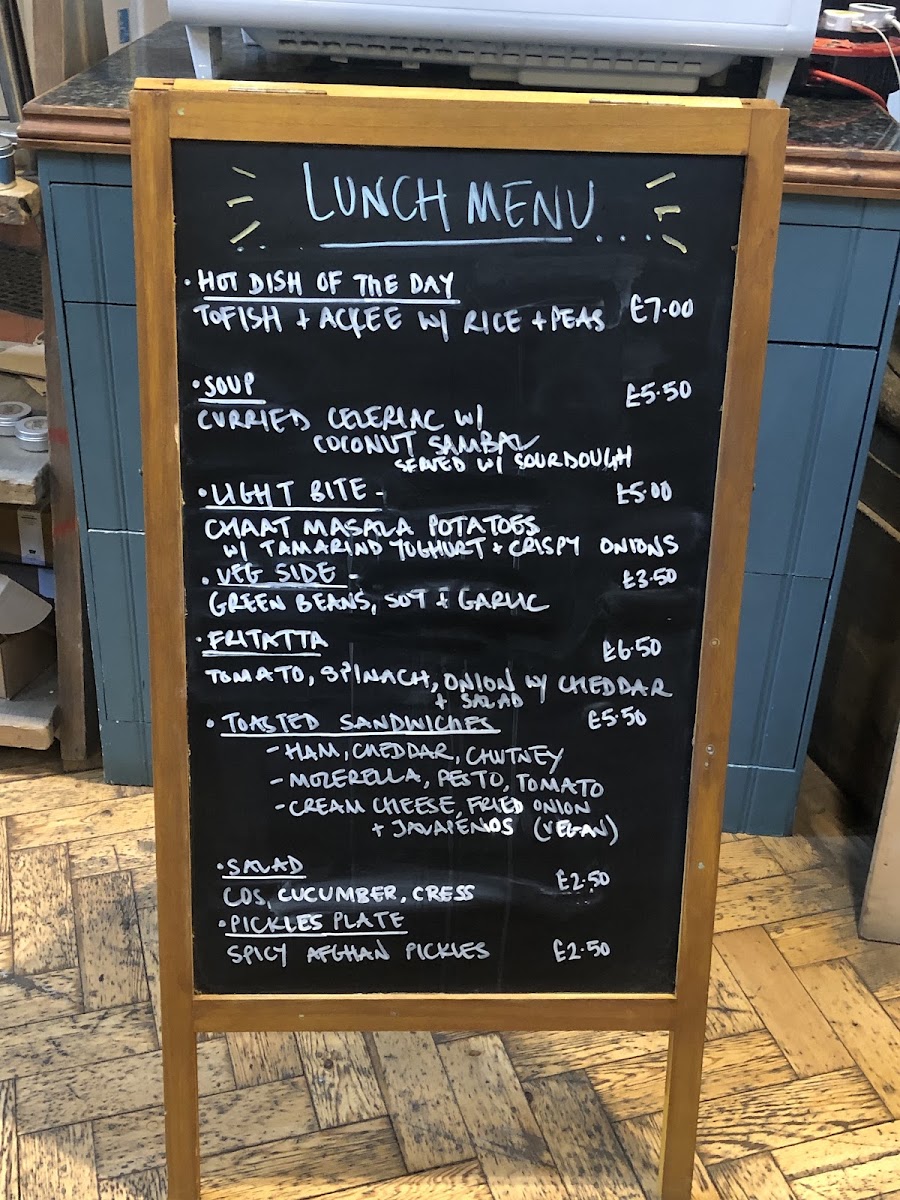 LUNCH MENU
• HOT DISH OF THE DAY
TOFISH + ACKEE W/ RICE + PEAS £7.00
• SOUP £5.50
CURRIED CELERIAC W/
COCONUT SAMBAL
SERVED W/ SOURDOUGH
• LIGHT BITE - £5.00
CHAAT MASALA POTATOES
W/ TAMARIND YOGHURT + CRISPY ONIONS
• VEG SIDE - £3.50
GREEN BEANS, SOY + GARLIC
• FRITATTA £6.50
TOMATO, SPINACH, ONION W/ CHEDDAR
+ SALAD
• TOASTED SANDWICHES £5.50
- HAM, CHEDDAR, CHUTNEY
- MOZERELLA, PESTO, TOMATO
- CREAM CHEESE, FRIED ONION
+ JAVAPÉNOS (VEGAN)
• SALAD
COS, CUCUMBER, CRESS £2.50
• PICKLES PLATE
SPICY AFGHAN PICKLES £2.50